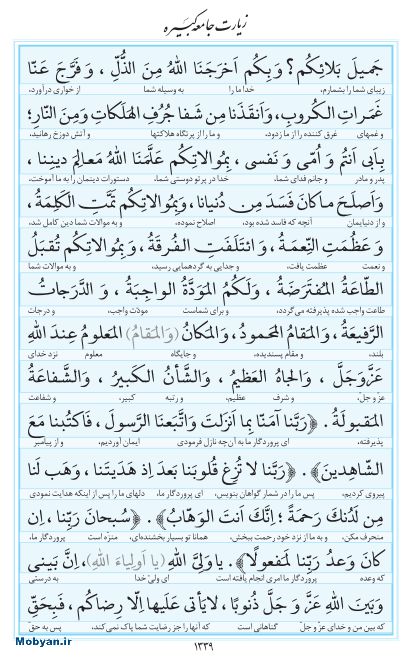 زیارت جامعه کبیره
جَمیلَ بَلائِکُم؟ وَبِکُم اَخرَجَنَا اللهُ مِنَ الذُّلِّ ، وَ فَرَّجَ عَنّا
زیبای شما را بشمارم، خدا ما را به وسیله شما از خواری درآورد،
غَمَراتِ الکُروبِ، وَاَنقَذَنا مِن شَفا جُرُفِ الهَلَکاتِ وَمِنَ النّارِ؛
و غمهای غرق کننده را از ما زدود، و ما را از پرتگاه هلاکتها و آتش دوزخ رهانید.
بِاَبی اَنتُم وَ اُمّی وَ نَفسی ، بِمُوالاتِکُم عَلَّمَنَا اللهُ مَعالِمَ دینِنا ،
پدر و مادر و جانم فدای شما، خدا در پرتو دوستی شما، دستورات دینمان را به ما آموخت،
وَ اَصلَحَ ما کانَ فَسَدَ مِن دُنیانا ، وَبِمُوالاتِکُم تَمَّتِ الکَلِمَةُ ،
و از دنیایمان آنچه که فاسد شده بود، اصلاح نموده، و به موالات شما دین کامل شد،
وَ عَظُمَتِ النِّعمَةُ ، وَ ائتَلَفَتِ الفُرقَةُ ، وَ بِمُوالاتِکُم تُقبَلُ
و نعمت عظمت یافت، و جدایی به گردهمایی رسید، و به موالات شما
الطّاعَةُ المُفتَرَضَةُ ، وَ لَکُمُ المَوَدَّةُ الواجِبَةُ ، وَ الدَّرَجاتُ
طاعت واجب شده پذیرفته می‌گردد، و برای شماست مودّت واجب، و درجات
الرَّفیعَةُ ، وَ المَقامُ المَحمودُ ، وَ المَکانُ (وَ المَقامُ) المَعلومُ عِندَ اللهِ
بلند، و مقام پسندیده، و جایگاه معلوم نزد خدای
عَزَّ وَ جَلَّ ، وَ الجاهُ العَظیمُ ، وَ الشَّأنُ الکَبیرُ ، وَ الشَّفاعَةُ
عزّ و جلّ، و شرف عظیم، و رتبه کبیر، و شفاعت
المَقبولَةُ . ﴿رَبَّنا آمَنّا بِما اَنزَلتَ وَ اتَّبَعنَا الرَّسولَ ، فَاکتُبنا مَعَ
پذیرفته. ای پروردگار ما به آن‌چه نازل فرمودی ایمان آوردیم، و از پیامبر
الشّاهِدینَ﴾ . ﴿رَبَّنا لا تُزِغ قُلوبَنا بَعدَ اِذ هَدَیتَنا ، وَ هَب لَنا
پیروی کردیم، پس ما را در شمار گواهان بنویس، ای پروردگار ما، دلهای ما را پس از اینکه هدایت نمودی
مِن لَدُنکَ رَحمَةً ؛ اِنَّکَ اَنتَ الوَهّابُ﴾ . ﴿سُبحانَ رَبِّنا ، اِن
منحرف مکن، و به ما از نزد خود رحمت ببخش، همانا تو بسیار بخشنده‌ای، منزّه است پروردگار ما،
کانَ وَعدُ رَبِّنا لَمَفعولاً﴾ . یا وَلِیَّ اللهِ (یا اَولِیاءَ اللهِ) ، اِنَّ بَینی
که وعده پروردگار ما امری انجام یافته است ای ولیّ خدا به درستی
وَ بَینَ اللهِ عَزَّ وَ جَلَّ ذُنوبًا ، لا یَأتی عَلَیها اِلّا رِضاکُم ، فَبِحَقِّ
که بین من و خدای عزّ و جلّ گناهانی است که آنها را جز رضایت شما پاک نمی‌کند. پس به حقّ
۱۳۳۹
Mobyan.ir